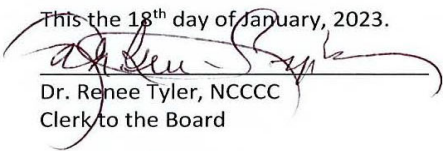 This the 18th day of January, 2023.
Dr. Renee Tyler, NCCCC
Clerk to the Board